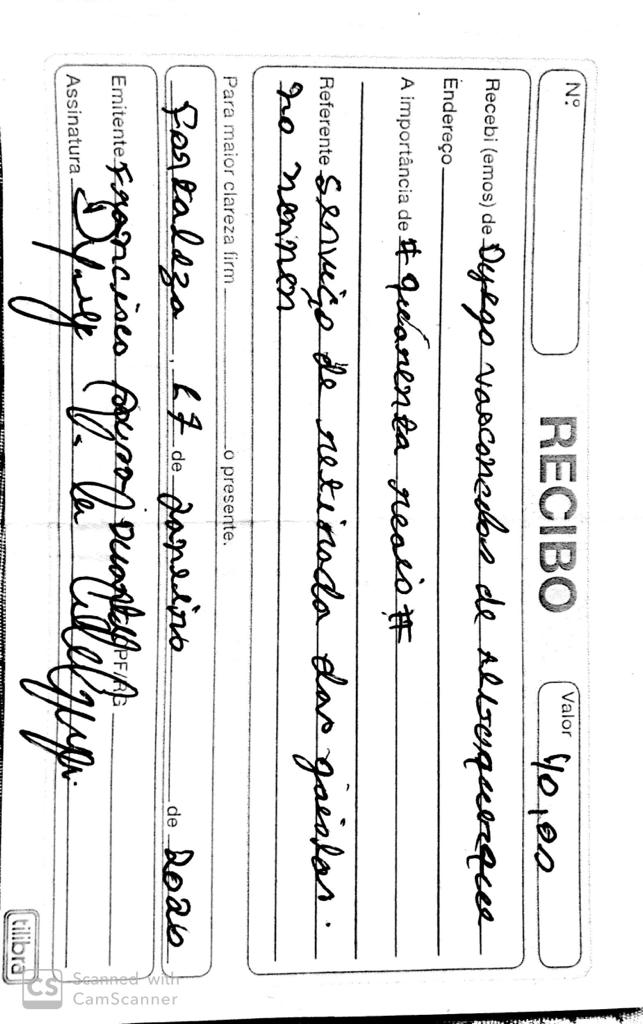 Nº
RECIBO
Valor 40,00
Recebi (emos) de Dyego Vasconcelos de Albuquerque
Endereço
A importância de # quarenta reais #
Referente Serviço de retirada das
no
Para maior clareza firm o presente.
Fortaleza, 27 de Janeiro de
Emitente Francisco Duarte CPF/RG
Assinatura
tilibra
CS Scanned with
CamScanner